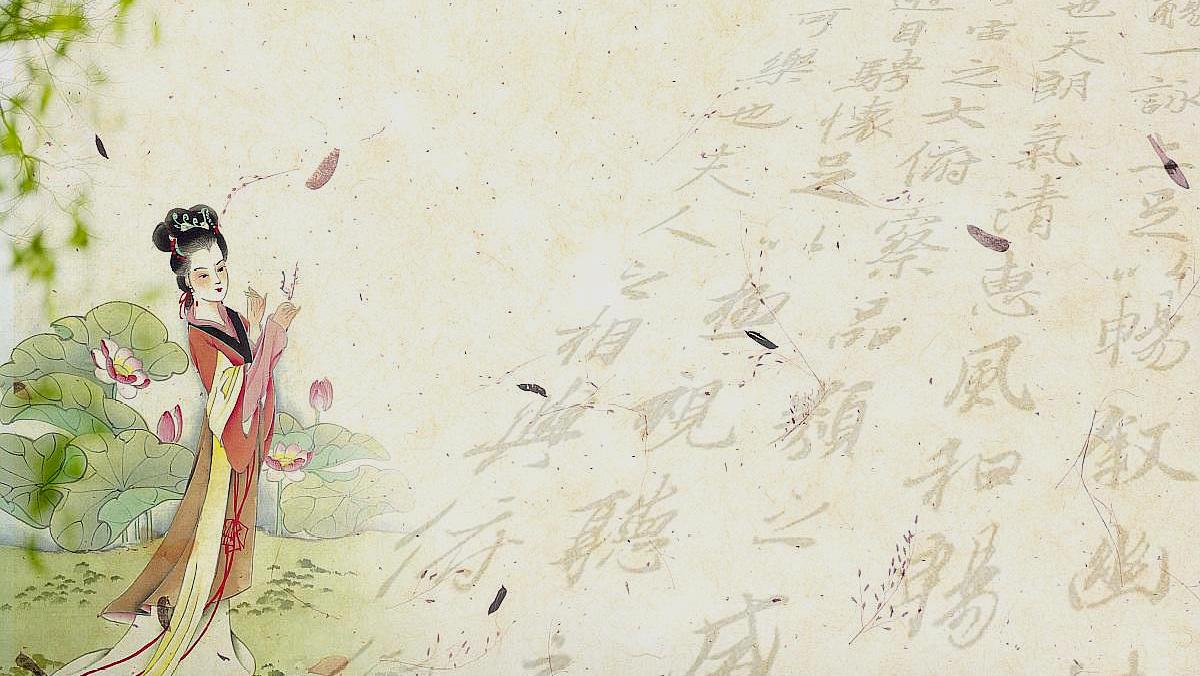 觴一詠亦足以暢叙幽
也天朗氣清惠風和暢
宙之大俯察品類之盛
遊目騁懷足以極視聽之
可樂也夫人之相與俯